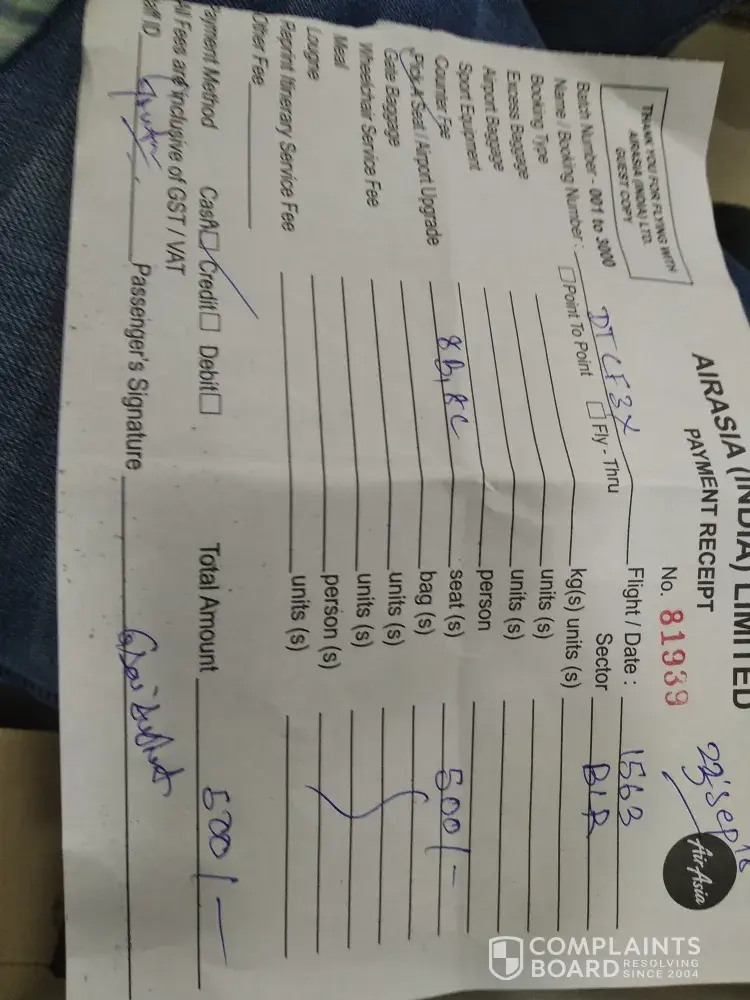 AIRASIA (INDIA) LIMITED
PAYMENT RECEIPT
THANK YOU FOR FLYING WITH
AIRASIA (INDIA) LTD.
GUEST COPY
No. 81939
22 Sep 18
AirAsia
Batch Number - 001 to 3000
Name / Booking Number : DTCF3X Flight / Date : 1563
Booking Type Point To Point Fly - Thru Sector BLR
Excess Baggage kg(s) units (s)
Airport Baggage units (s)
Sport Equipment units (s)
Counter Fee person
Pick A Seat / Airport Upgrade 8B, 8C seat (s) 500/-
Gate Baggage bag (s)
Wheelchair Service Fee units (s)
Meal units (s)
Lougne person (s)
Reprint Itinerary Service Fee units (s)
Other Fee
ayment Method Cash Credit Debit Total Amount 500/-
ll Fees are inclusive of GST / VAT
aff ID Passenger's Signature
COMPLAINTS
BOARD RESOLVING
SINCE 2004